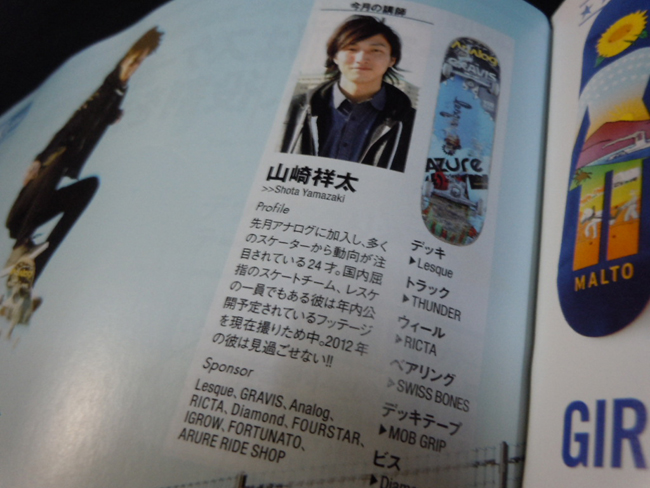 今月の講師
山崎祥太
>>Shota Yamazaki
Profile
先月アナログに加入し、多く
のスケーターから動向が注
目されている24才。国内屈
指のスケートチーム、レスケ
の一員でもある彼は年内公
開予定されているフッテージ
を現在撮りため中。2012年
の彼は見過ごせない!!
Sponsor
Lesque、GRAVIS、Analog、
RICTA、Diamond、FOURSTAR、
IGROW、FORTUNATO、
ARURE RIDE SHOP
AnALOG
GRAVIS
azure
デッキ
▶Lesque
トラック
▶THUNDER
ウィール
▶RICTA
ベアリング
▶SWISS BONES
デッキテープ
▶MOB GRIP
ビス
▶Diamo
MALTO
GIR